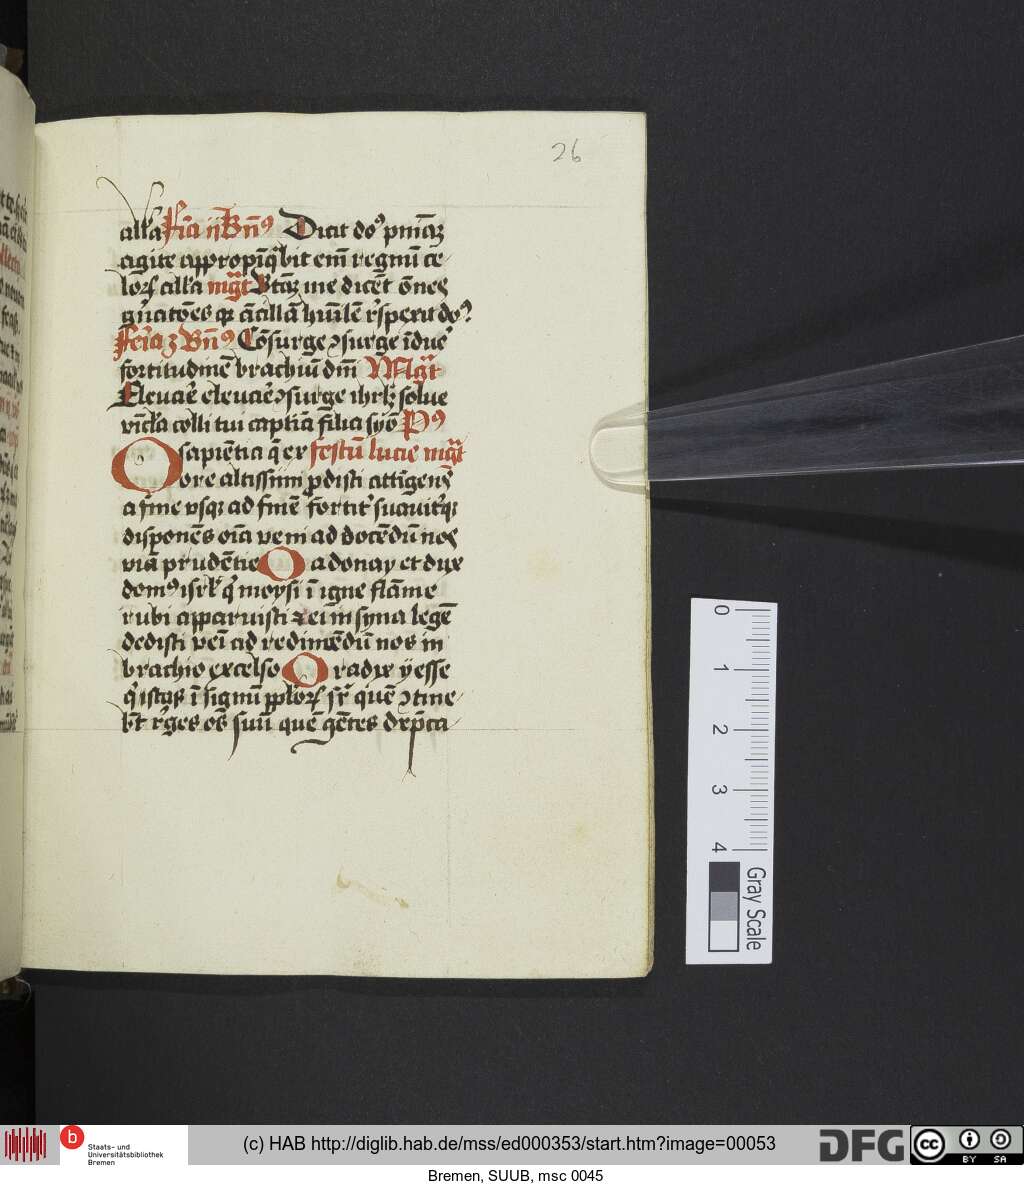 26
all'a Fīa ij Bn̄9 Dicit do9 pn̄iāꝫ
agite appropīq̄bit em̄ regnū ce
lorꝝ all'a mgͣt Btāꝫ me dicēt ōnes
gn̄atōes qꝛ ācillā hūilē r̄spexit do9
Feīa 3 Bn̄9 Cōsurge ɔsurge īdue
fortitudinē brachiū dn̄i Mgͣt
Eleuaē eleuaē ɔsurge ihrlꝫ solue
vīcla colli tui captiā filia syō P9
O sapiētia q̄ ex festū lucie mgͣt
ore altissimi ꝓdisti attīgens
a fine vsqꝫ ad finē fortit' suauit'qꝫ
disponēs oīa veni ad docēdū nos
viā prudētie O adonay et dux
dom9 isrl' q̄ moysi ī igne flāme
rubi apparuisti ⁊ ei in syna legē
dedisti veī ad redimēdū nos in
brachio excelso O radix yesse
q̄ istas ī signū pplorꝝ sr̄ quē ɔtine
bt̄ r̄ges os suū quē gētes dep̄ca
0 1 2 3 4
Gray Scale
b Staats- und
Universitätsbibliothek
Bremen
(c) HAB http://diglib.hab.de/mss/ed000353/start.htm?image=00053
DFG
cc BY SA
Bremen, SUUB, msc 0045